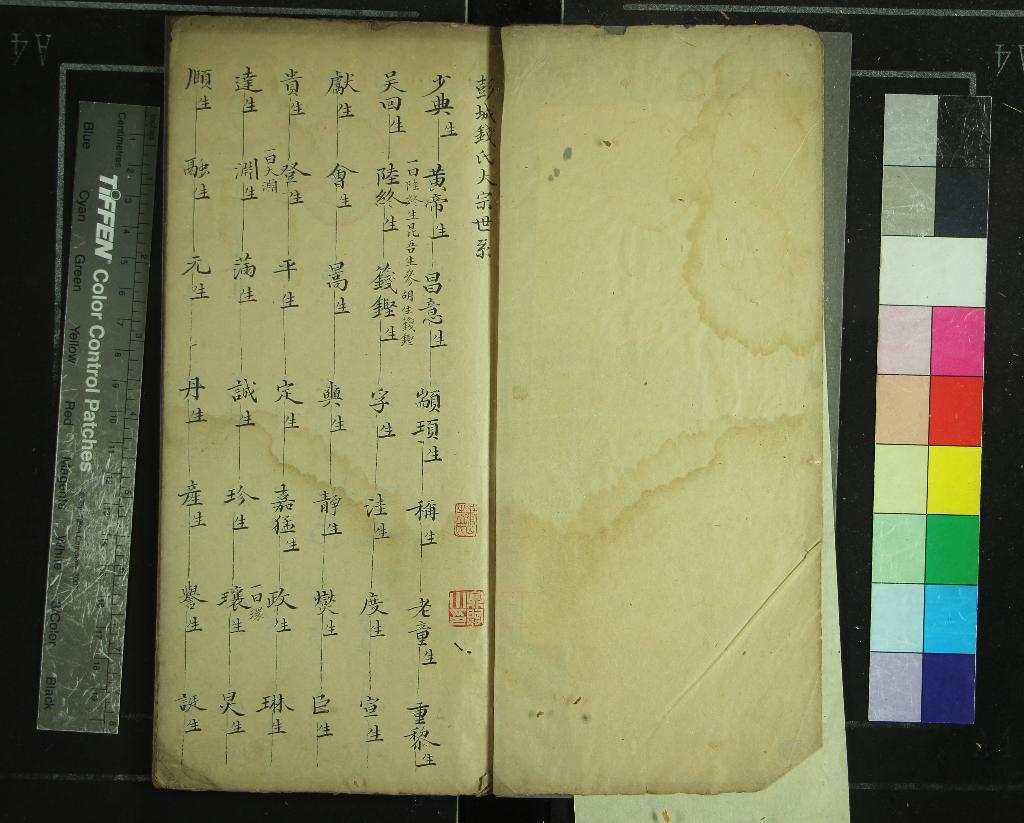 彭城錢氏大宗世系
少典生 黃帝生 昌意生 顓頊生 稱生 老童生 重黎生
一曰陸終生昆吾生參胡生籛鏗
吴回生 陸終生 籛鏗生 孚生 洼生 度生 宣生
獻生 會生 暠生 興生 靜生 爕生 臣生
貴生 登生 平生 定生 嘉猛生 政生 琳生
一曰大淵
一曰環
達生 淵生 滿生 誠生 珍生 瓌生 炅生
順生 融生 元生 丹生 產生 譽生 誕生
A4
A4
TIFFEN Color Control Patches
Centimetres
Inches
Blue
Cyan
Green
Yellow
Red
Magenta
White
3/Color
Black